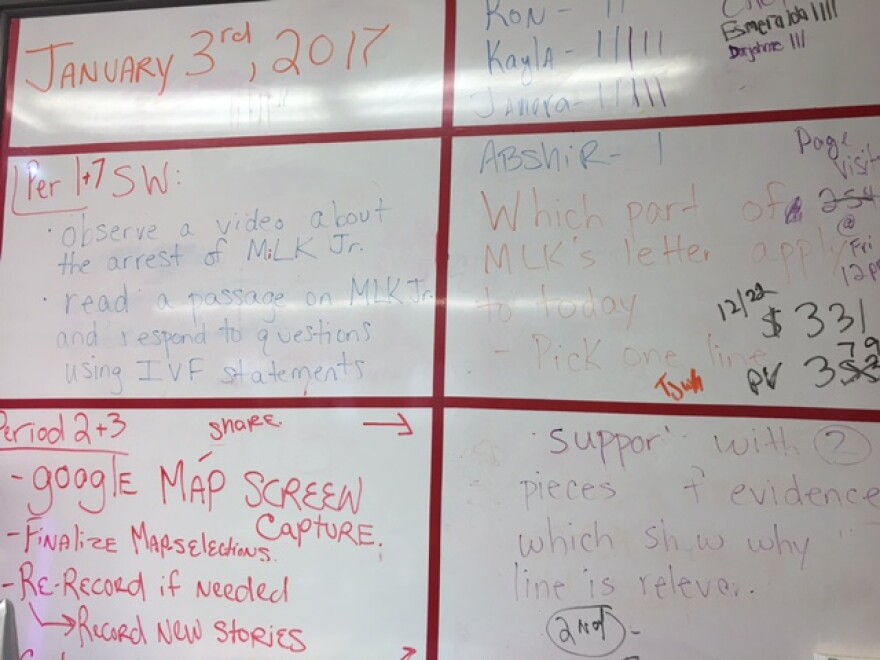 JANUARY 3rd, 2017
RON - ||
KaylA - |||||
JAmera - |||||
Esmeralda ||||
Daphne |||
Per 1+7 SW:
• observe a video about
the arrest of MiLK Jr.
• read a passage on MLK Jr.
and respond to questions
using IVF statements
ABSHiR - 1
Which part of
MLK's letter apply
to today
- Pick one line
Page
Visit
254
@
Fri
12pm
12/22
$ 331
79
PV 352
Period 2+3
SHARE →
- google MAP SCREEN
CAPTURE.
- FINAlIZE MAP selections.
- RE-RECORD if NEEded
→ RECORD NEW STORIES
suppor with 2
pieces f evidence
which sh w why
line is releva .
2nd -